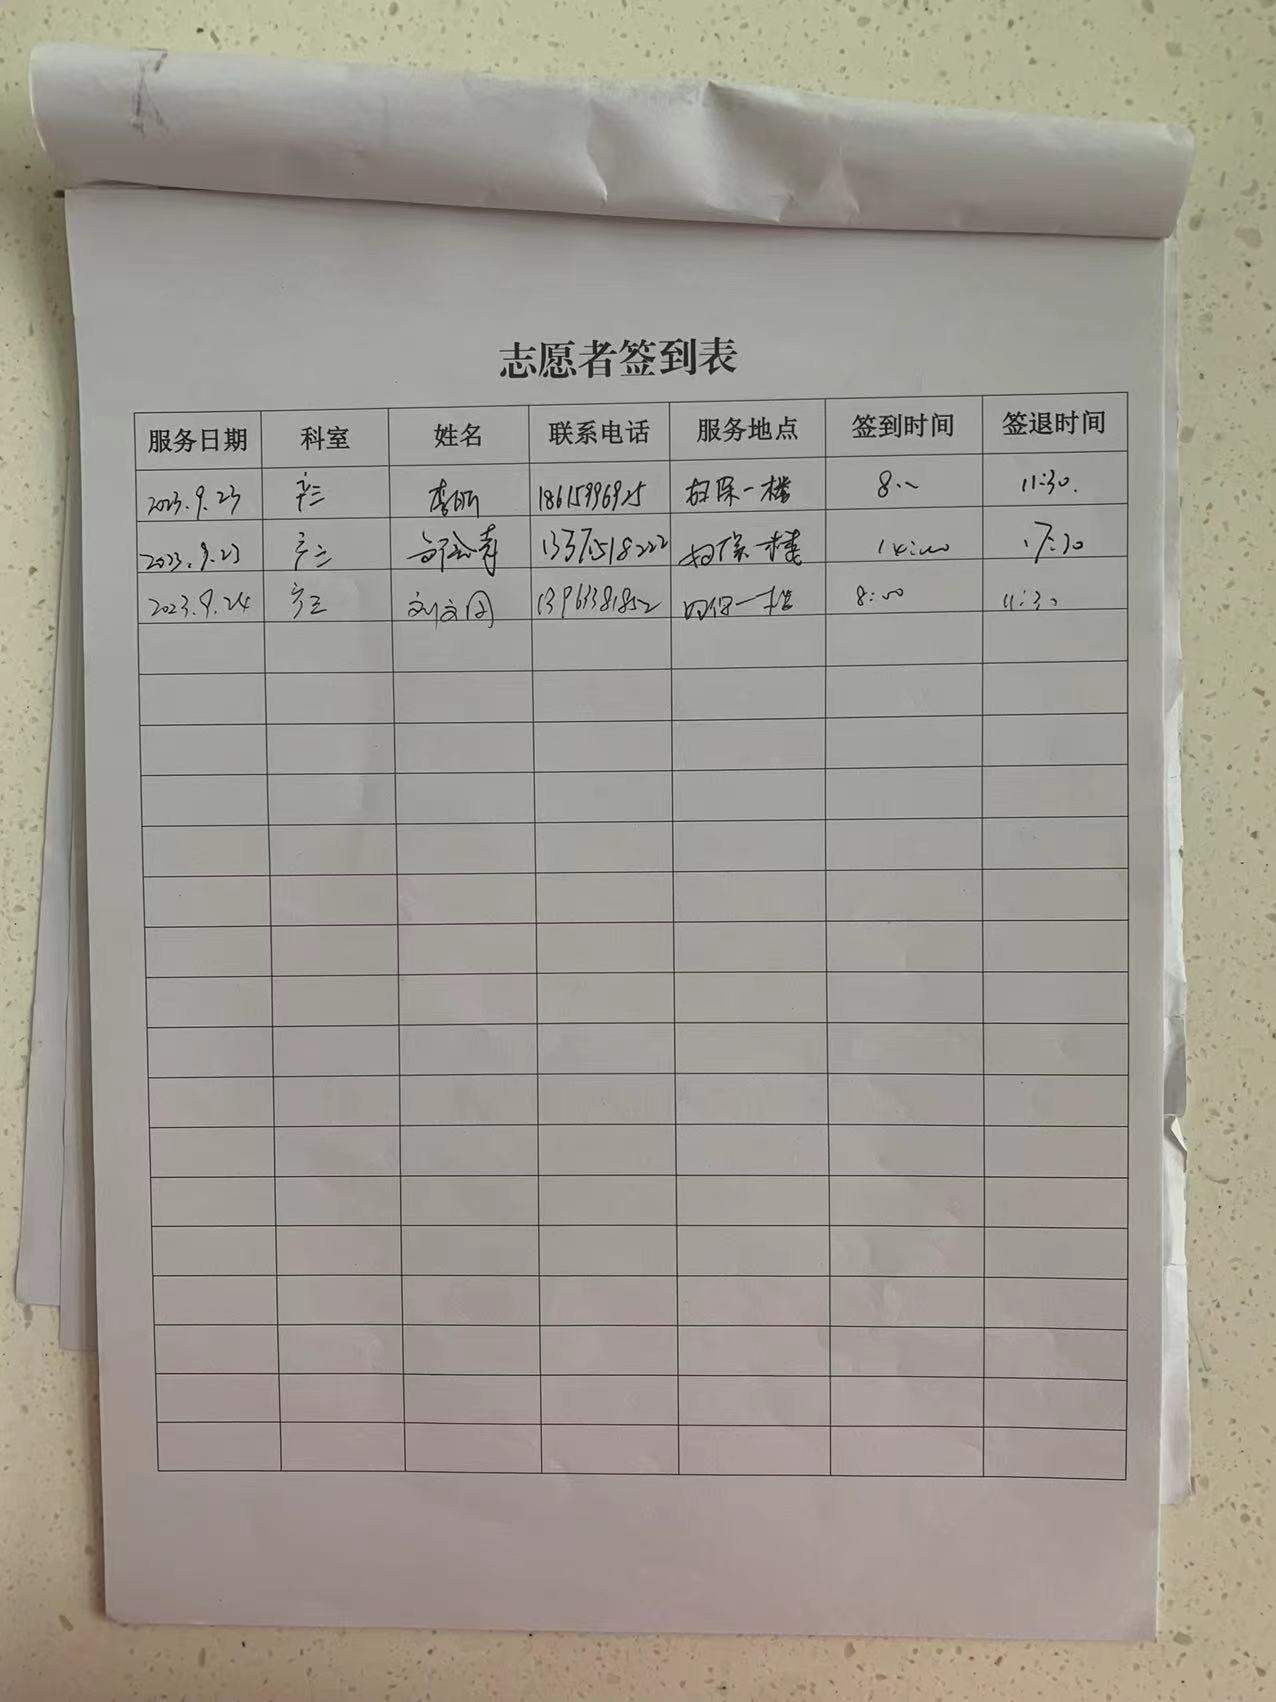 志愿者签到表
服务日期 科室 姓名 联系电话 服务地点 签到时间 签退时间
2023.9.23 产三 李昕 18615996925 妇保一楼 8:00 11:30.
2023.9.23 产三 13375518222 妇保一楼 14:00 17:30
2023.9.24 产三 刘文图 13963381852 妇保一楼 8:00 11:30